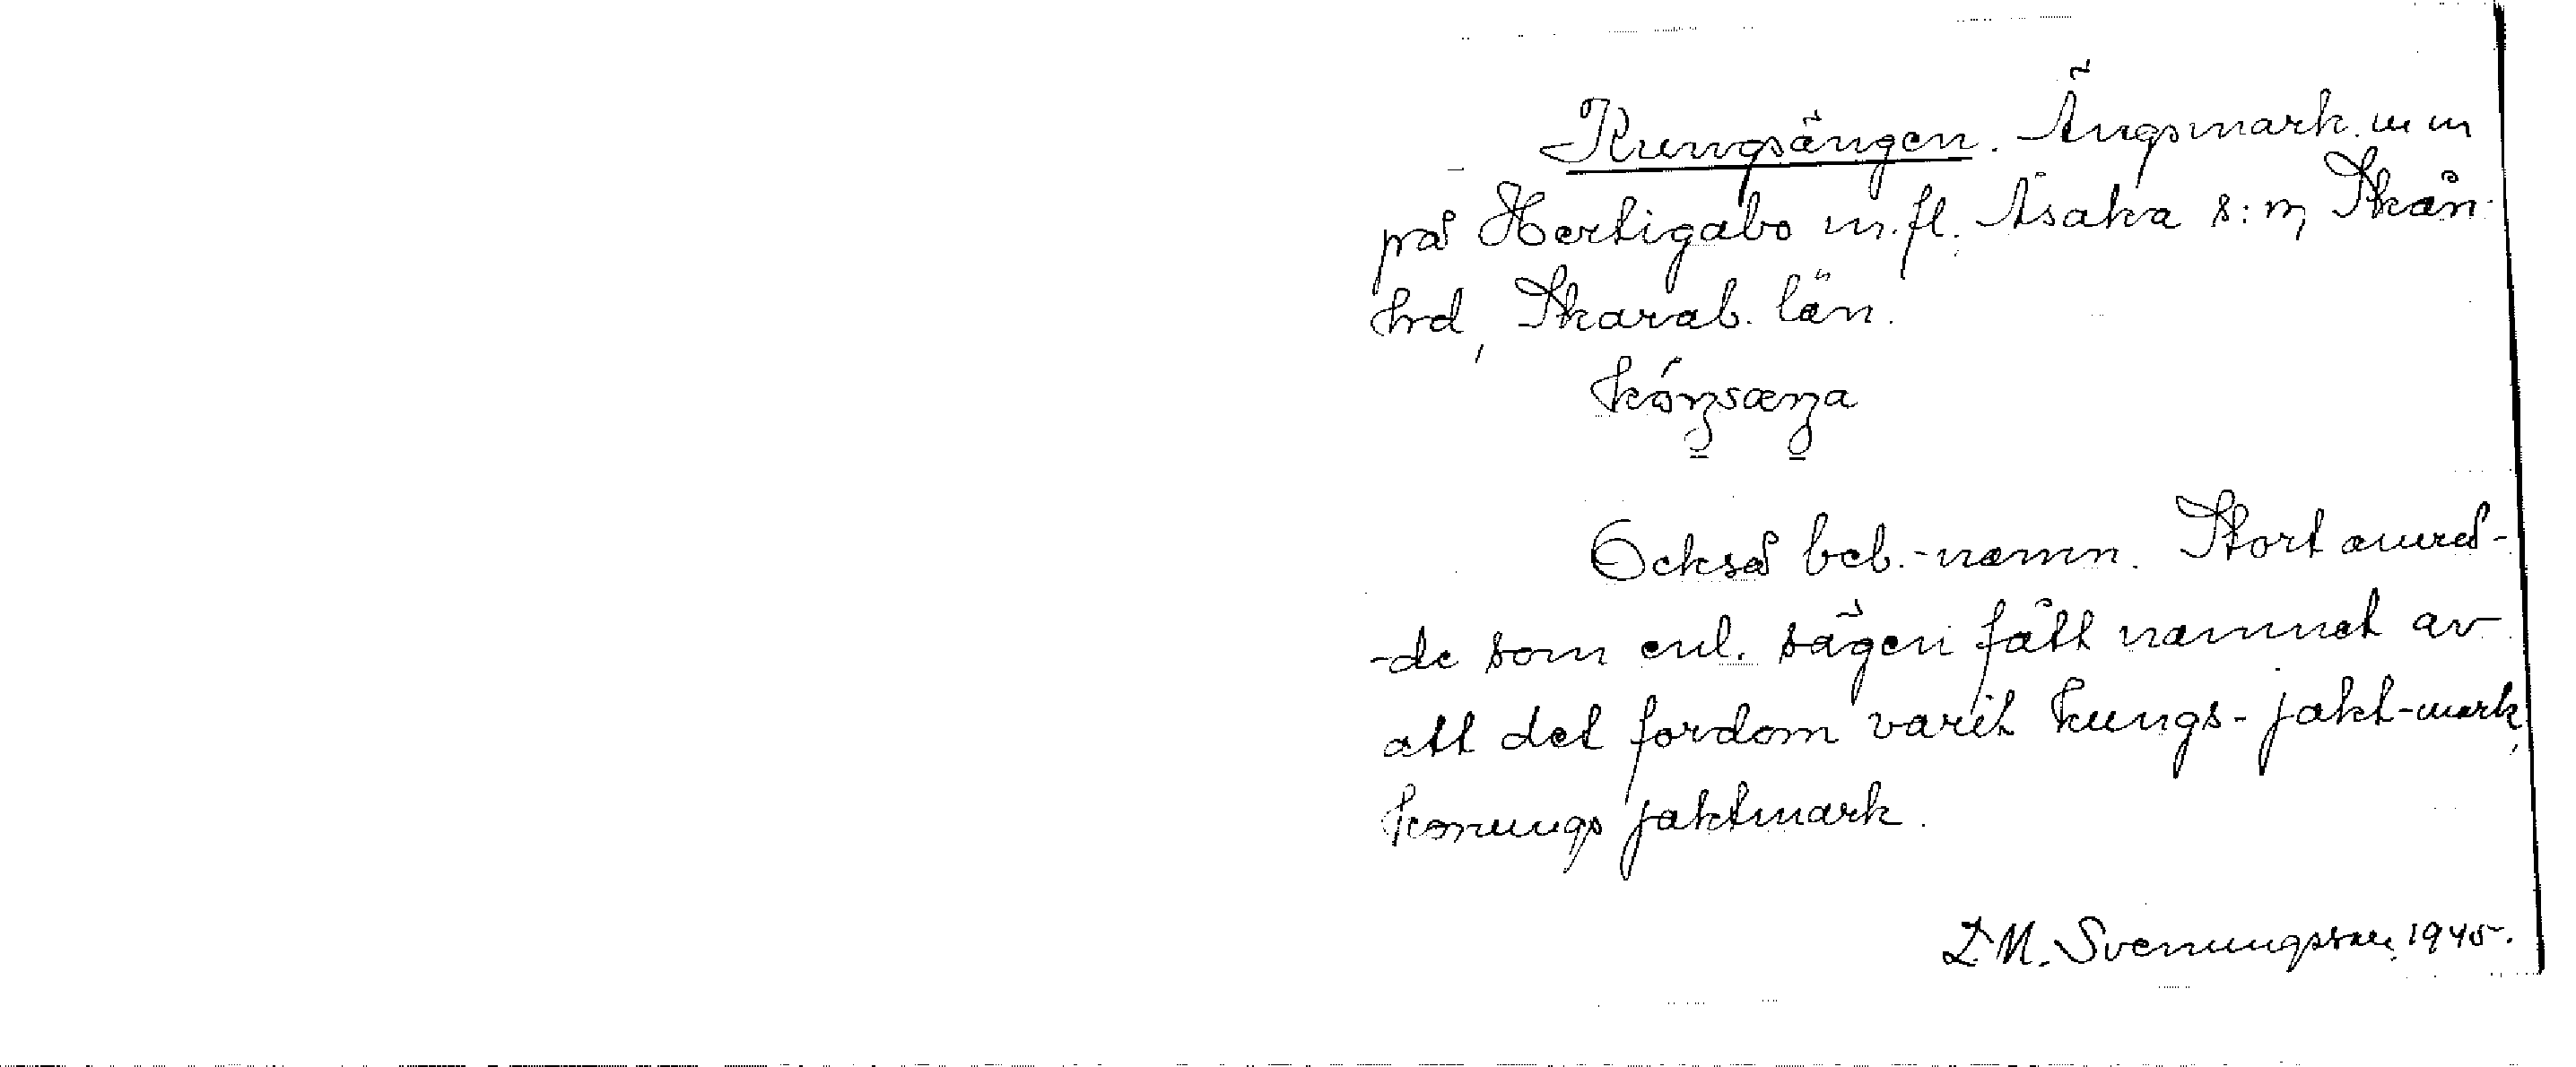 Kungsängen. Ängsmark m m
på Hertigabo m.fl. Åsaka s:n, Skån-
hrd, Skarab. län.
kóŋsæŋa
Också beb.-namn. Stort områ-
-de som enl. sägen fått namnet av
att det fordom varit kungs-jakt-mark,
konungs jaktmark.
L.M. Svenungsson 1945.